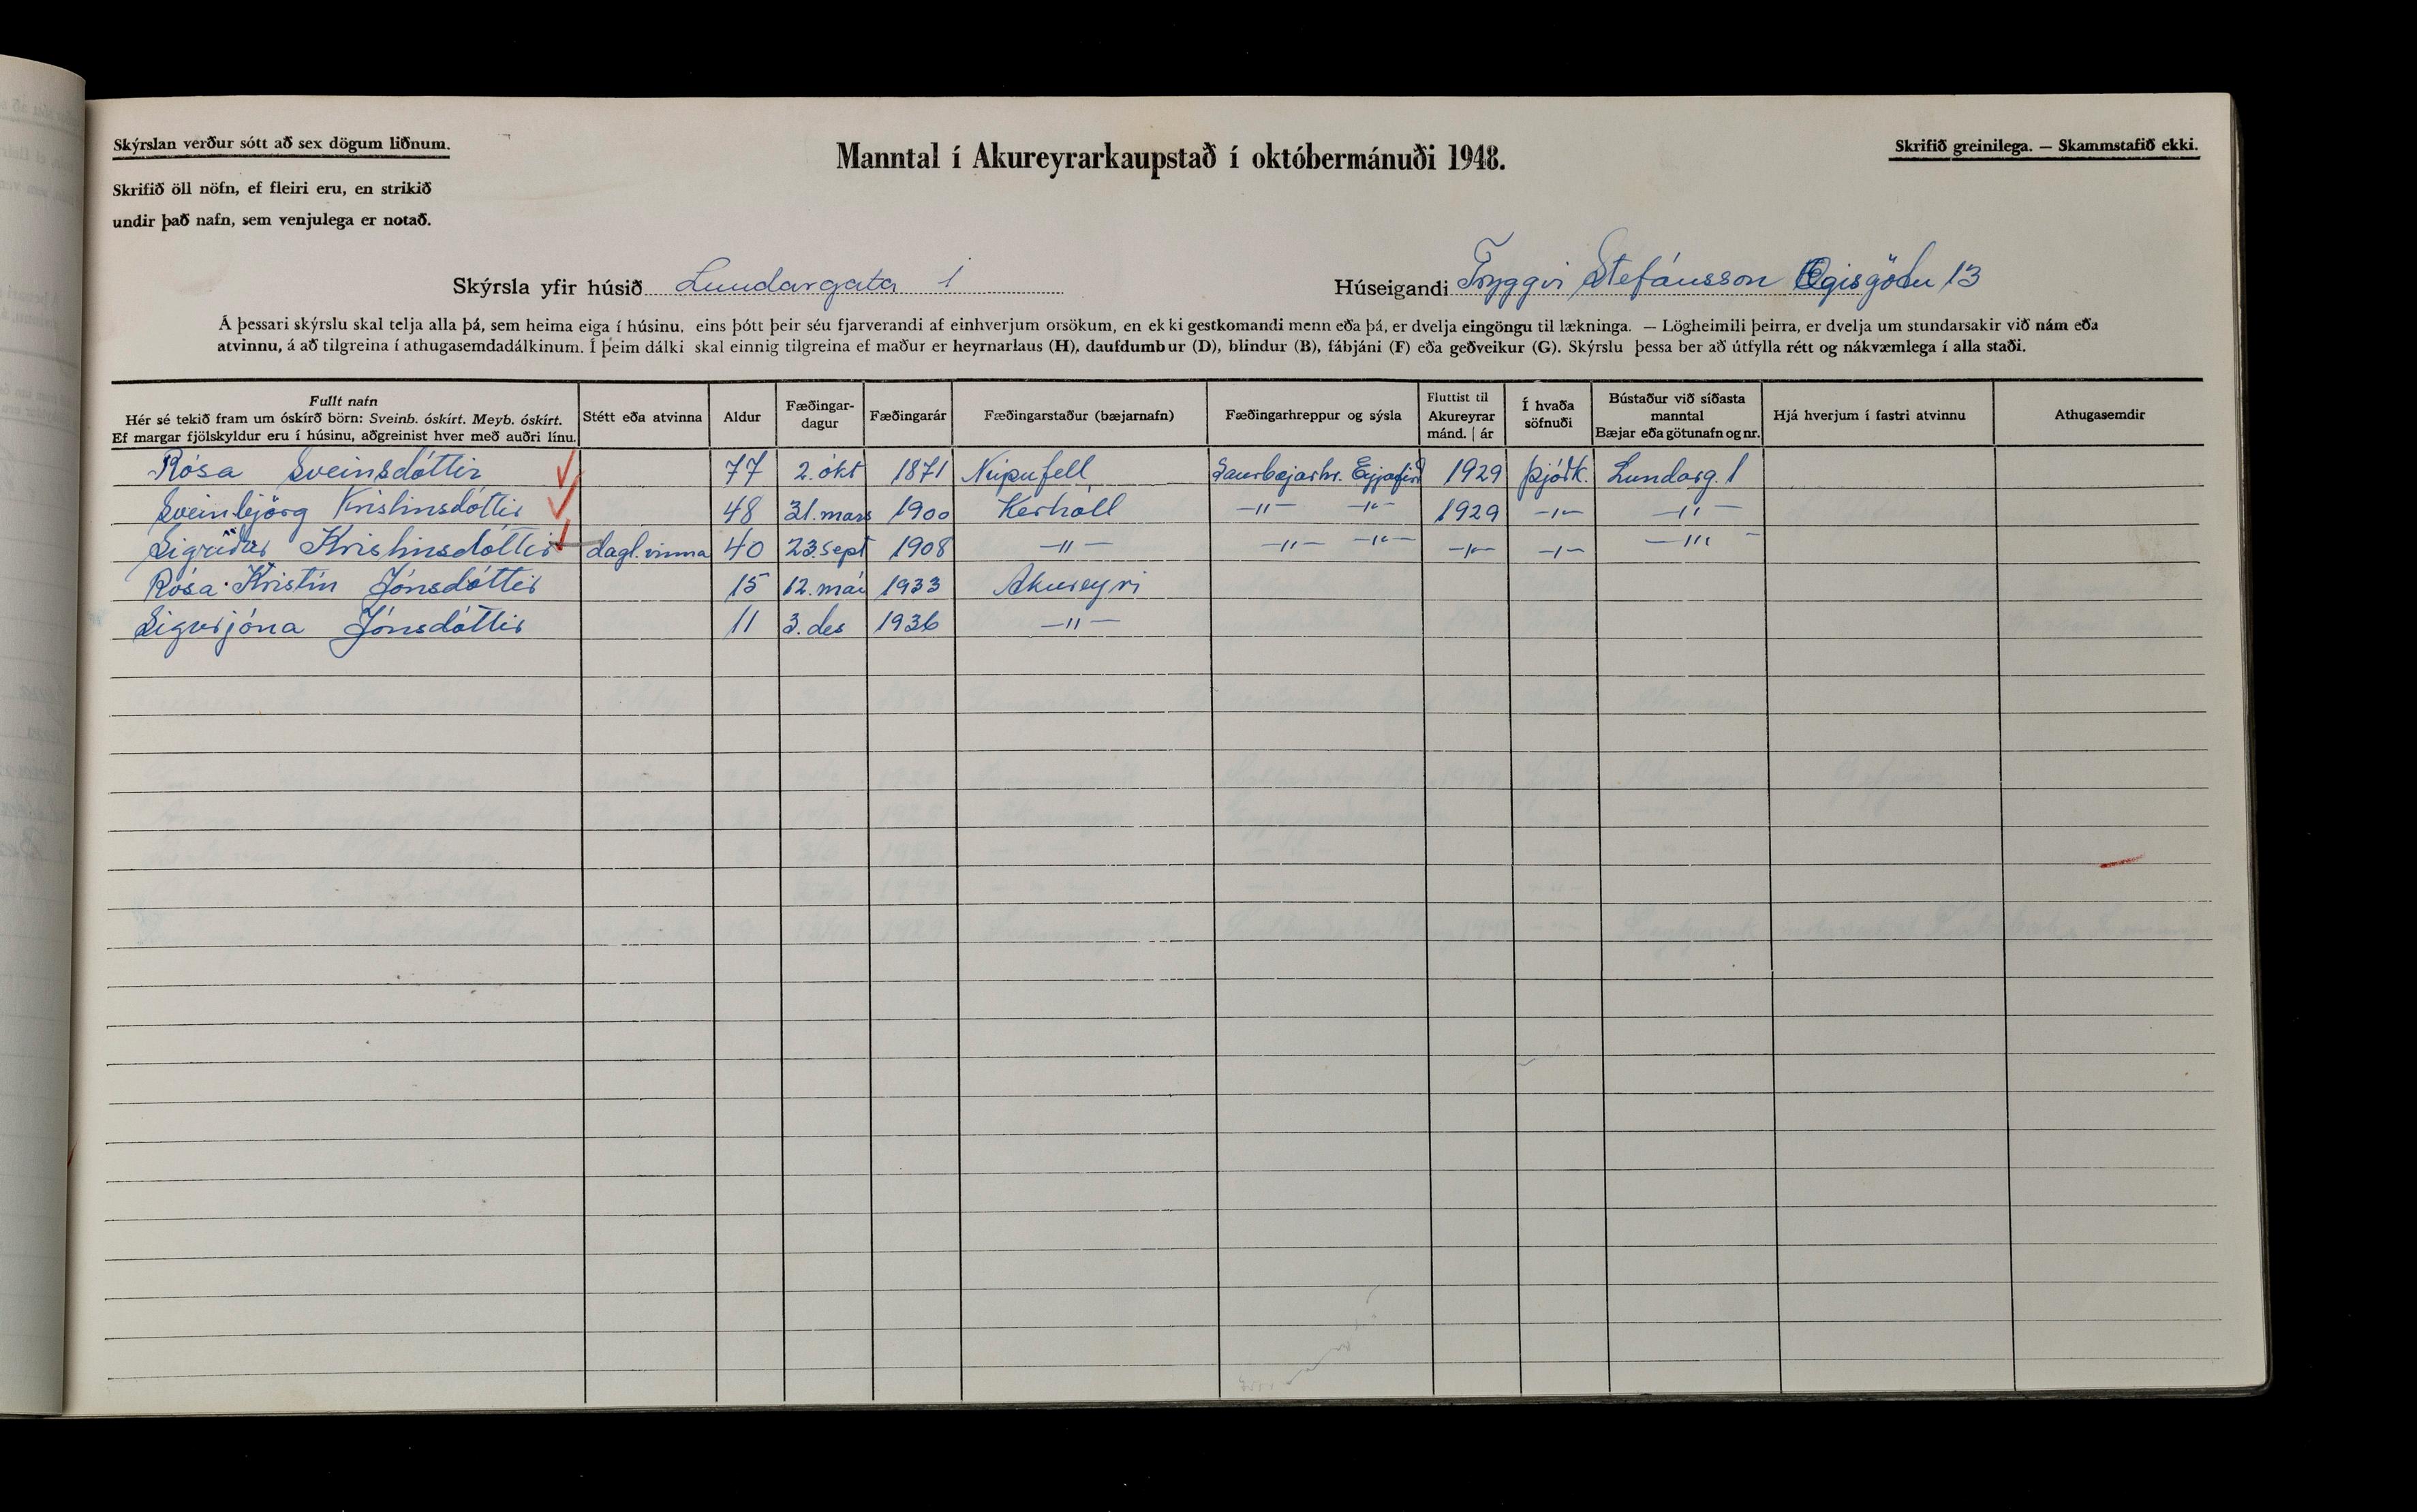 Skýrslan verður sótt að sex dögum liðnum.
Skrifið öll nöfn, ef fleiri eru, en strikið
undir það nafn, sem venjulega er notað.
Manntal í Akureyrarkaupstað í októbermánuði 1948.
Skrifið greinilega. — Skammstafið ekki.
Skýrsla yfir húsið Lundargata 1
Húseigandi Tryggvi Stefánsson Ægisgötu 13
Á þessari skýrslu skal telja alla þá, sem heima eiga í húsinu, eins þótt þeir séu fjarverandi af einhverjum orsökum, en ekki gestkomandi menn eða þá, er dvelja eingöngu til lækninga. — Lögheimili þeirra, er dvelja um stundarsakir við nám eða
atvinnu, á að tilgreina í athugasemdadálkinum. Í þeim dálki skal einnig tilgreina ef maður er heyrnarlaus (H), daufdumbur (D), blindur (B), fábjáni (F) eða geðveikur (G). Skýrslu þessa ber að útfylla rétt og nákvæmlega í alla staði.
Fullt nafn
Hér sé tekið fram um óskírð börn: Sveinb. óskírt. Meyb. óskírt.
Ef margar fjölskyldur eru í húsinu, aðgreinist hver með auðri línu.
Stétt eða atvinna
Aldur
Fæðingar-
dagur
Fæðingarár
Fæðingarstaður (bæjarnafn)
Fæðingarhreppur og sýsla
Fluttist til
Akureyrar
mánd. | ár
Í hvaða
söfnuði
Bústaður við síðasta
manntal
Bæjar eða götunafn og nr.
Hjá hverjum í fastri atvinnu
Athugasemdir
Rósa Sveinsdóttir 77 2. okt 1871 Núpufell Saurbæjarhr. Eyjafird 1929 Þjóðk. Lundarg. 1
Sveinbjörg Kristinsdóttir 48 31. mars 1900 Kerhóll —"— —"— 1929 —"— —"—
Sigríður Kristinsdóttir dagl. vinna 40 23. sept 1908 —"— —"— —"— —"— —"— —"—
Rósa Kristín Jónsdóttir 15 12. maí 1933 Akureyri
Sigurjóna Jónsdóttir 11 3. des 1936 —"—